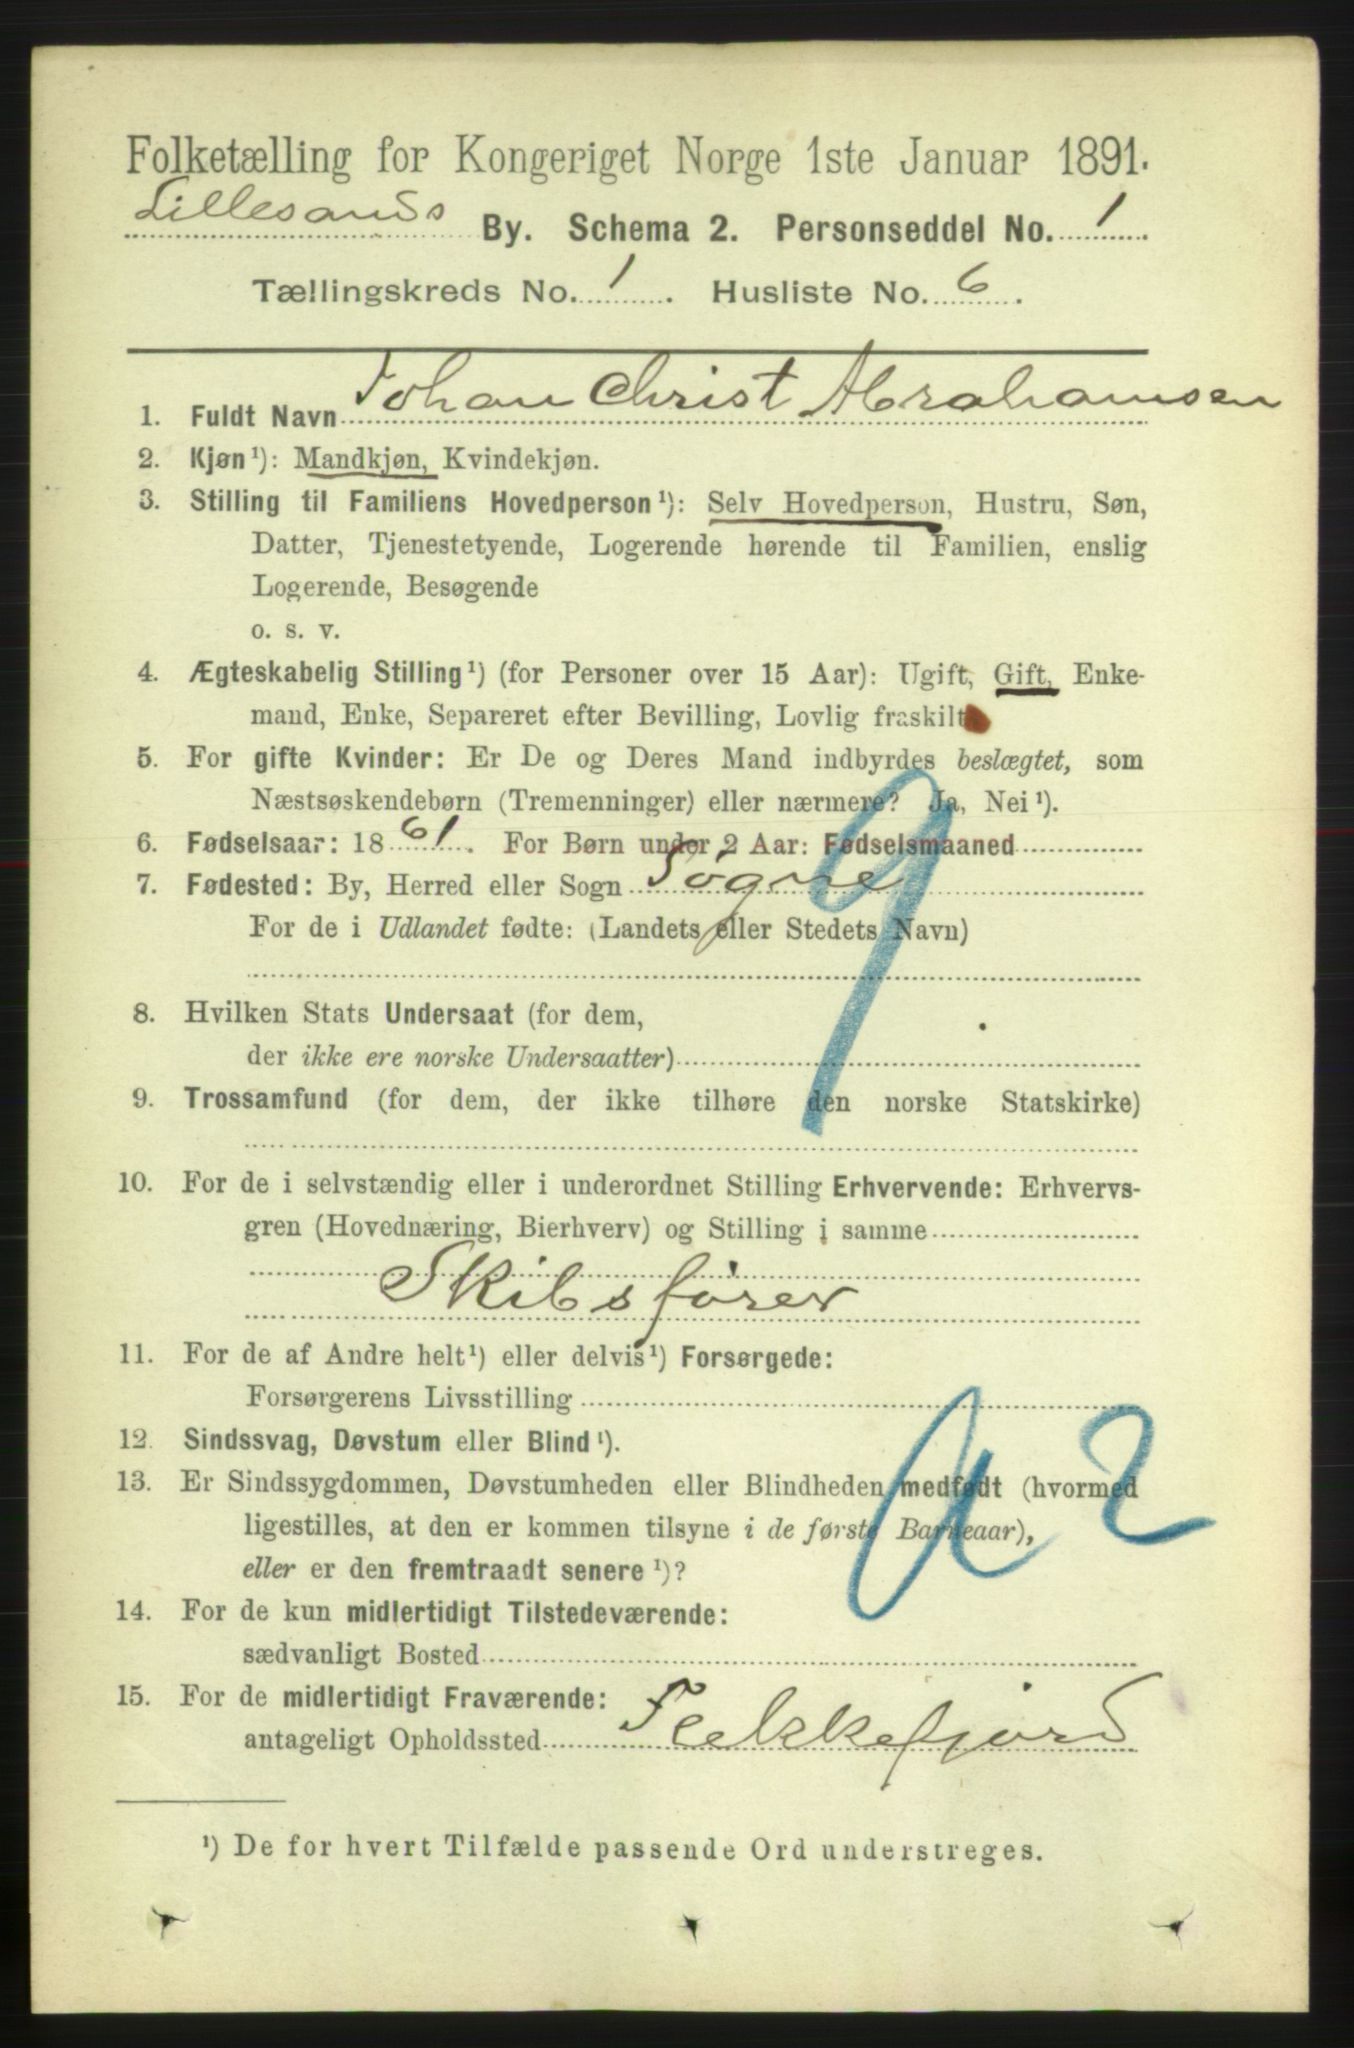 Folketælling for Kongeriget Norge 1ste Januar 1891.
Lillesands By. Schema 2. Personseddel No. 1
Tællingskreds No. 1. Husliste No. 6.
1. Fuldt Navn Johan Christ Abrahamsen
2. Kjøn¹): Mandkjøn, Kvindekjøn.
3. Stilling til Familiens Hovedperson¹): Selv Hovedperson, Hustru, Søn,
Datter, Tjenestetyende, Logerende hørende til Familien, enslig
Logerende, Besøgende
o. s. v.
4. Ægteskabelig Stilling¹) (for Personer over 15 Aar): Ugift, Gift, Enke-
mand, Enke, Separeret efter Bevilling, Lovlig fraskilt
5. For gifte Kvinder: Er De og Deres Mand indbyrdes beslægtet, som
Næstsøskendebørn (Tremenninger) eller nærmere? Ja, Nei¹).
6. Fødselsaar: 1861. For Børn under 2 Aar: Fødselsmaaned
7. Fødested: By, Herred eller Sogn Søgne
For de i Udlandet fødte: (Landets eller Stedets Navn)
9
8. Hvilken Stats Undersaat (for dem,
der ikke ere norske Undersaatter)
9. Trossamfund (for dem, der ikke tilhøre den norske Statskirke)
10. For de i selvstændig eller i underordnet Stilling Erhvervende: Erhvervs-
gren (Hovednæring, Bierhverv) og Stilling i samme
Skibsfører
11. For de af Andre helt¹) eller delvis¹) Forsørgede:
Forsørgerens Livsstilling
12. Sindssvag, Døvstum eller Blind¹).
13. Er Sindssygdommen, Døvstumheden eller Blindheden medfødt (hvormed
ligestilles, at den er kommen tilsyne i de første Barneaar),
eller er den fremtraadt senere¹)?
a 2
14. For de kun midlertidigt Tilstedeværende:
sædvanligt Bosted
15. For de midlertidigt Fraværende:
antageligt Opholdssted Flekkefjord
¹) De for hvert Tilfælde passende Ord understreges.